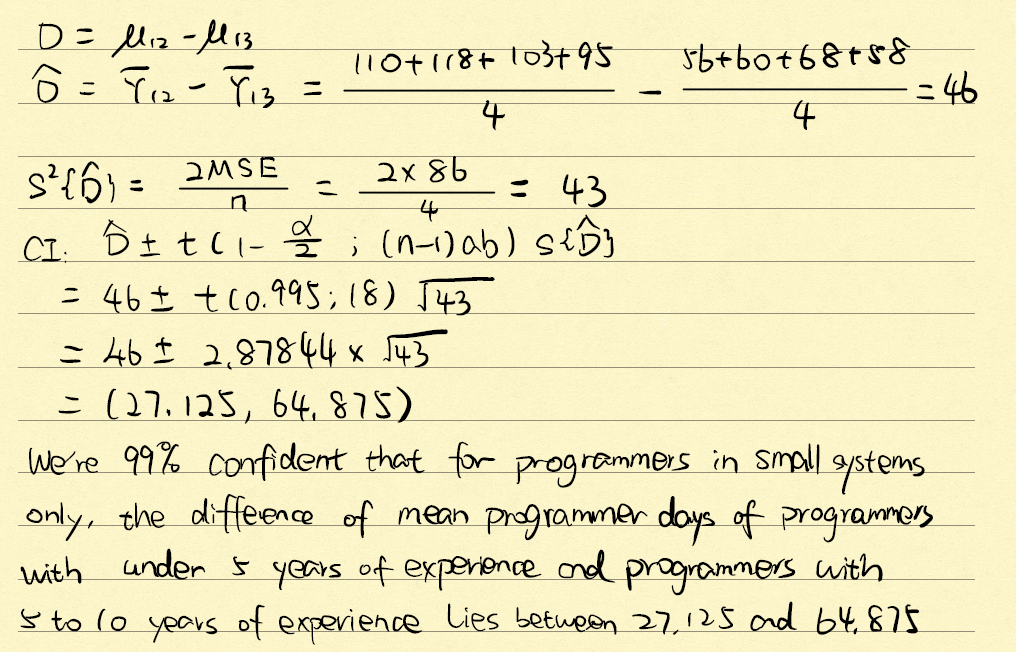 D = μ₁₂ - μ₁₃
D̂ = Ȳ₁₂ - Ȳ₁₃ = (110+118+103+95)/4 - (56+60+68+58)/4 = 46
S²{D̂} = 2MSE/n = 2×86/4 = 43
CI: D̂ ± t(1-α/2 ; (n-1)ab) s{D̂}
= 46 ± t(0.995; 18) √43
= 46 ± 2.87844 × √43
= (27.125, 64.875)
We're 99% confident that for programmers in small systems
only, the difference of mean programmer days of programmers
with under 5 years of experience and programmers with
5 to 10 years of experience lies between 27.125 and 64.875